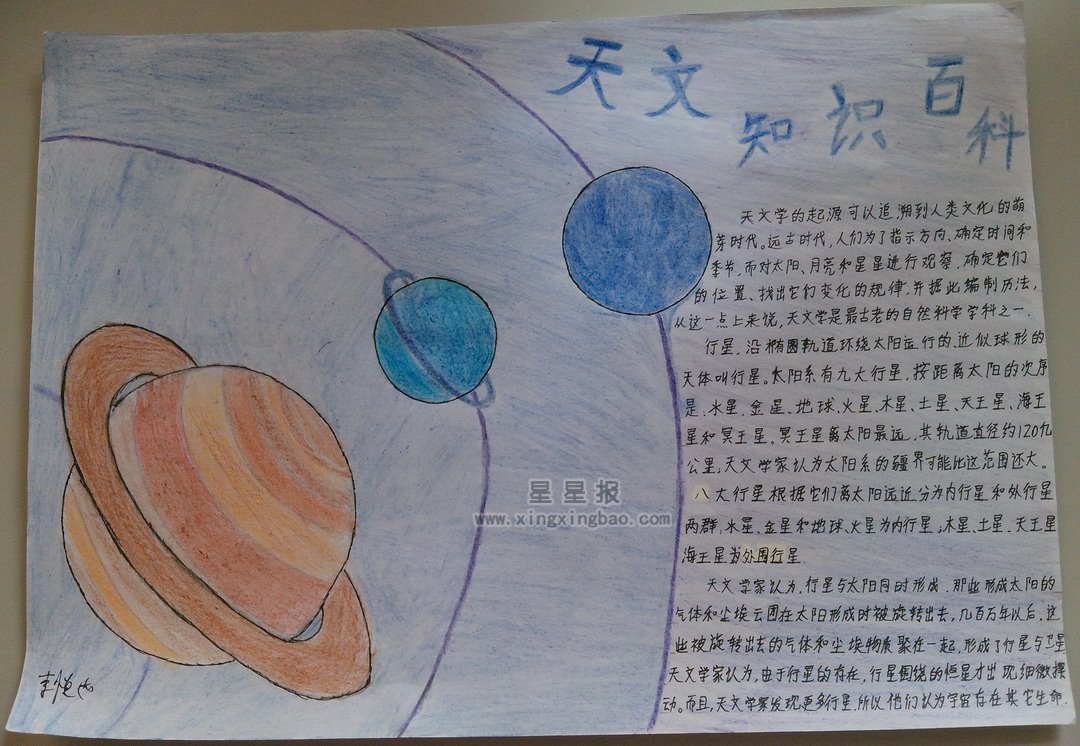 天文知识百科
天文学的起源可以追溯到人类文化的萌
芽时代。远古时代,人们为了指示方向、确定时间和
季节,而对太阳、月亮和星星进行观察,确定它们
的位置、找出它们变化的规律,并据此编制历法,
从这一点上来说,天文学是最古老的自然科学学科之一.
行星,沿椭圆轨道环绕太阳运行的、近似球形的
天体叫行星。太阳系有九大行星,按距离太阳的次序
是:水星、金星、地球、火星、木星、土星、天王星、海王
星和冥王星,冥王星离太阳最远,其轨道直径约120九
公里;天文学家认为太阳系的疆界可能比这范围还大。
八大行星根据它们离太阳远近分为内行星和外行星
两群,水星、金星和地球、火星为内行星;木星、土星、天王星
海王星为外围行星.
天文学家认为,行星与太阳同时形成.那些形成太阳的
气体和尘埃云团在太阳形成时被旋转出去,几百万年以后,这
些被旋转出去的气体和尘埃物质聚在一起,形成了行星与卫星
天文学家认为,由于行星的存在,行星围绕的恒星才出现细微摆
动。而且,天文学家发现更多行星,所以他们认为宇宙存在其它生命.
星星报
www.xingxingbao.com